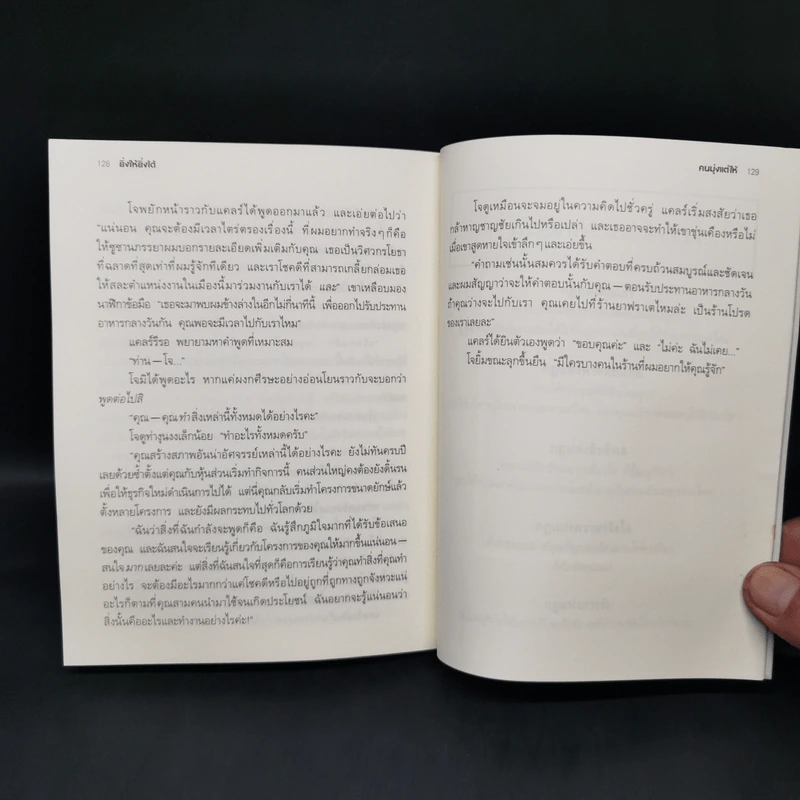 128 ยิ่งให้ยิ่งได้
โจพยักหน้าราวกับแคลร์ได้พูดออกมาแล้ว และเอ่ยต่อไปว่า
"แน่นอน คุณจะต้องมีเวลาไตร่ตรองเรื่องนี้ ที่ผมอยากทำจริงๆ ก็คือ
ให้ซูซานภรรยาผมบอกรายละเอียดเพิ่มเติมกับคุณ เธอเป็นวิศวกรโยธา
ที่ฉลาดที่สุดเท่าที่ผมรู้จักทีเดียว และเราโชคดีที่สามารถเกลี้ยกล่อมเธอ
ให้สละตำแหน่งงานในเมืองนี้มาร่วมงานกับเราได้ และ" เขาเหลือบมอง
นาฬิกาข้อมือ "เธอจะมาพบผมข้างล่างในอีกไม่กี่นาทีนี้ เพื่อออกไปรับประทาน
อาหารกลางวันกัน คุณพอจะมีเวลาไปกับเราไหม"
แคลร์รีรอ พยายามหาคำพูดที่เหมาะสม
"ท่าน — โจ..."
โจมิได้พูดอะไร หากแค่ผงกศีรษะอย่างอ่อนโยนราวกับจะบอกว่า
พูดต่อไปสิ
"คุณ — คุณทำสิ่งเหล่านี้ทั้งหมดได้อย่างไรคะ"
โจดูท่างุนงงเล็กน้อย "ทำอะไรทั้งหมดครับ"
"คุณสร้างสภาพอันน่าอัศจรรย์เหล่านี้ได้อย่างไรคะ ยังไม่ทันครบปี
เลยด้วยซ้ำตั้งแต่คุณกับหุ้นส่วนเริ่มทำกิจการนี้ คนส่วนใหญ่คงต้องยังดิ้นรน
เพื่อให้ธุรกิจใหม่ดำเนินการไปได้ แต่นี่คุณกลับเริ่มทำโครงการขนาดยักษ์แล้ว
ตั้งหลายโครงการ และยังมีผลกระทบไปทั่วโลกด้วย
"ฉันว่าสิ่งที่ฉันกำลังจะพูดก็คือ ฉันรู้สึกภูมิใจมากที่ได้รับข้อเสนอ
ของคุณ และฉันสนใจจะเรียนรู้เกี่ยวกับโครงการของคุณให้มากขึ้นแน่นอน —
สนใจมากเลยละค่ะ แต่สิ่งที่ฉันสนใจที่สุดก็คือการเรียนรู้ว่าคุณทำสิ่งที่คุณทำ
อย่างไร จะต้องมีอะไรมากกว่าแค่โชคดีหรือไปอยู่ถูกที่ถูกทางถูกจังหวะแน่
อะไรก็ตามที่คุณสามคนนำมาใช้จนเกิดประโยชน์ ฉันอยากจะรู้แน่นอนว่า
สิ่งนั้นคืออะไรและทำงานอย่างไรค่ะ!"
คนมุ่งแต่ให้ 129
โจดูเหมือนจะจมอยู่ในความคิดไปชั่วครู่ แคลร์เริ่มสงสัยว่าเธอ
กล้าหาญชาญชัยเกินไปหรือเปล่า และเธออาจจะทำให้เขาขุ่นเคืองหรือไม่
เมื่อเขาสูดหายใจเข้าลึกๆ และเอ่ยขึ้น
"คำถามเช่นนั้นสมควรได้รับคำตอบที่ครบถ้วนสมบูรณ์และชัดเจน
และผมสัญญาว่าจะให้คำตอบนั้นกับคุณ — ตอนรับประทานอาหารกลางวัน
ถ้าคุณว่างจะไปกับเรา คุณเคยไปที่ร้านยาฟราเตไหมล่ะ เป็นร้านโปรด
ของเราเลยละ"
แคลร์ได้ยินตัวเองพูดว่า "ขอบคุณค่ะ" และ "ไม่ค่ะ ฉันไม่เคย..."
โจยิ้มขณะลุกขึ้นยืน "มีใครบางคนในร้านที่ผมอยากให้คุณรู้จัก"